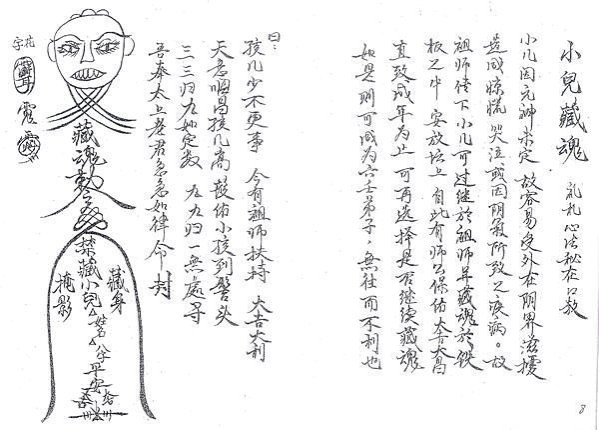 小兒藏魂 礼礼心法秘在口教
小儿因元神未定 故容易受外在阴界滋擾
造成惊慌 哭泣 或因阴氣所致之疾病。故
祖师传下小儿可过继於祖师旱藏魂於鉄
板之中 安放坛上 自此有师公保佑大吉大昌
直致成年为止 可再选择是否继续藏魂
如是则可成为六壬弟子,無往而不利也
曰:
孩儿少不更事 今有祖师扶持 大吉大利
天意唱昌孩儿高 鼓佑小孩到髻头
三三归九妙定数 九九归一無處寻
吾奉太上老君急急如律令 封
花字
藏魂勅令
禁藏小兒 姓名 八字平安
藏身
掩影
8